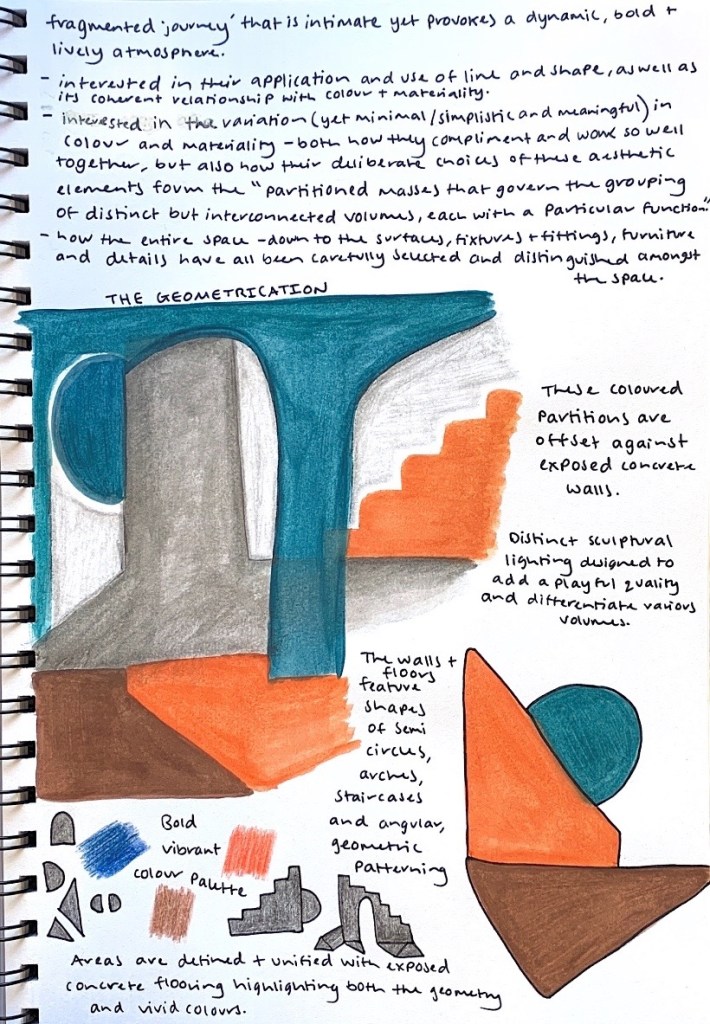 fragmented 'journey' that is intimate yet provokes a dynamic, bold +
lively atmosphere.
- interested in their application and use of line and shape, aswell as
its coherent relationship with colour + materiality.
- interested in the variation (yet minimal/simplistic and meaningful) in
colour and materiality - both how they compliment and work so well
together, but also how their deliberate choices of these aesthetic
elements form the "partitioned masses that govern the grouping
of distinct but interconnected volumes, each with a particular function."
- how the entire space - down to the surfaces, fixtures + fittings, furniture
and details have all been carefully selected and distinguished amongst
the space.
THE GEOMETRICATION
These coloured
partitions are
offset against
exposed concrete
walls.
Distinct sculptural
lighting designed to
add a playful quality
and differentiate various
volumes.
The walls +
floors
feature
shapes
of semi
circles,
arches,
staircases
and angular,
geometric
patterning
Bold
vibrant
colour palette
Areas are defined + unified with exposed
concrete flooring highlighting both the geometry
and vivid colours.